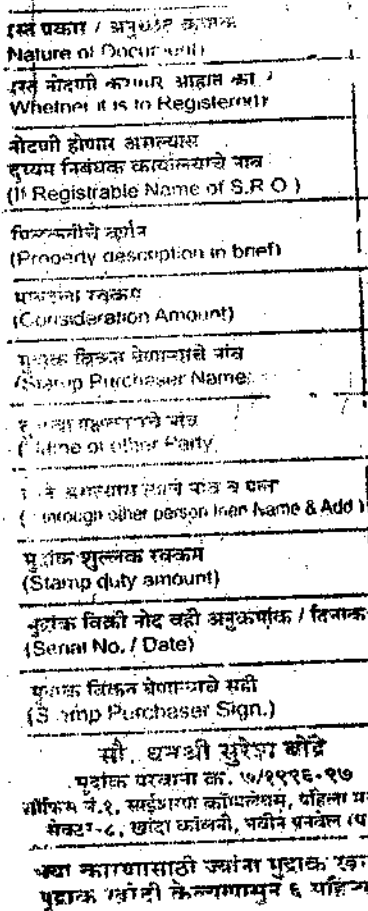 दस्त प्रकार / अनुच्छेद क्रमांक
Nature of Document)
दस्त नोंदणी करणार आहात का ?
Whether it is to Registered)
नोंदणी होणार असल्यास
दुय्यम निबंधक कार्यालयाचे नाव
(If Registrable Name of S.R.O.)
मिळकतीचे वर्णन
(Property description in brief)
मोबदला रक्कम
(Consideration Amount)
मुद्रांक विकत घेणाऱ्याचे नांव
(Stamp Purchaser Name)
नांव
Name of other Party
असल्यास त्यांचे नांव व पत्ता
(Through other person then Name & Add)
मुद्रांक शुल्लक रक्कम
(Stamp duty amount)
मुद्रांक विक्री नोंद वही अनुक्रमांक / दिनांक
(Serial No. / Date)
मुद्रांक विकत घेणाऱ्याचे सही
(Stamp Purchaser Sign.)
सौ. धनश्री सुरेश बोंद्रे
मुद्रांक परवाना क्र. ७/१९९६-९७
ऑफिस नं.१, कॉम्पलेक्स, पहिला
सेक्टर-८, खांदा कॉलनी, नवीन पनवेल
ज्या कारणासाठी ज्यांनी मुद्रांक
मुद्रांक खरेदी केल्यापासून ६